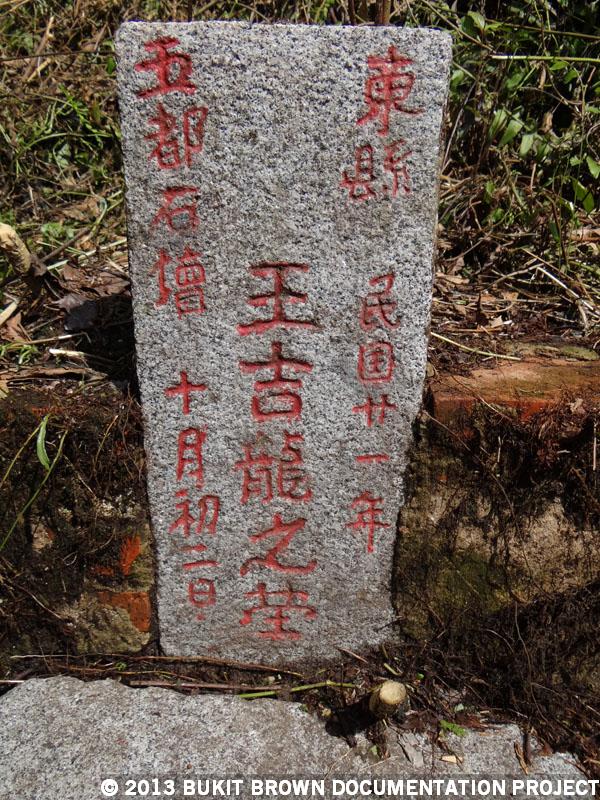 東縣
民国廿一年
王吉龍之塋
五都石
十月初二日
© 2013 BUKIT BROWN DOCUMENTATION PROJECT